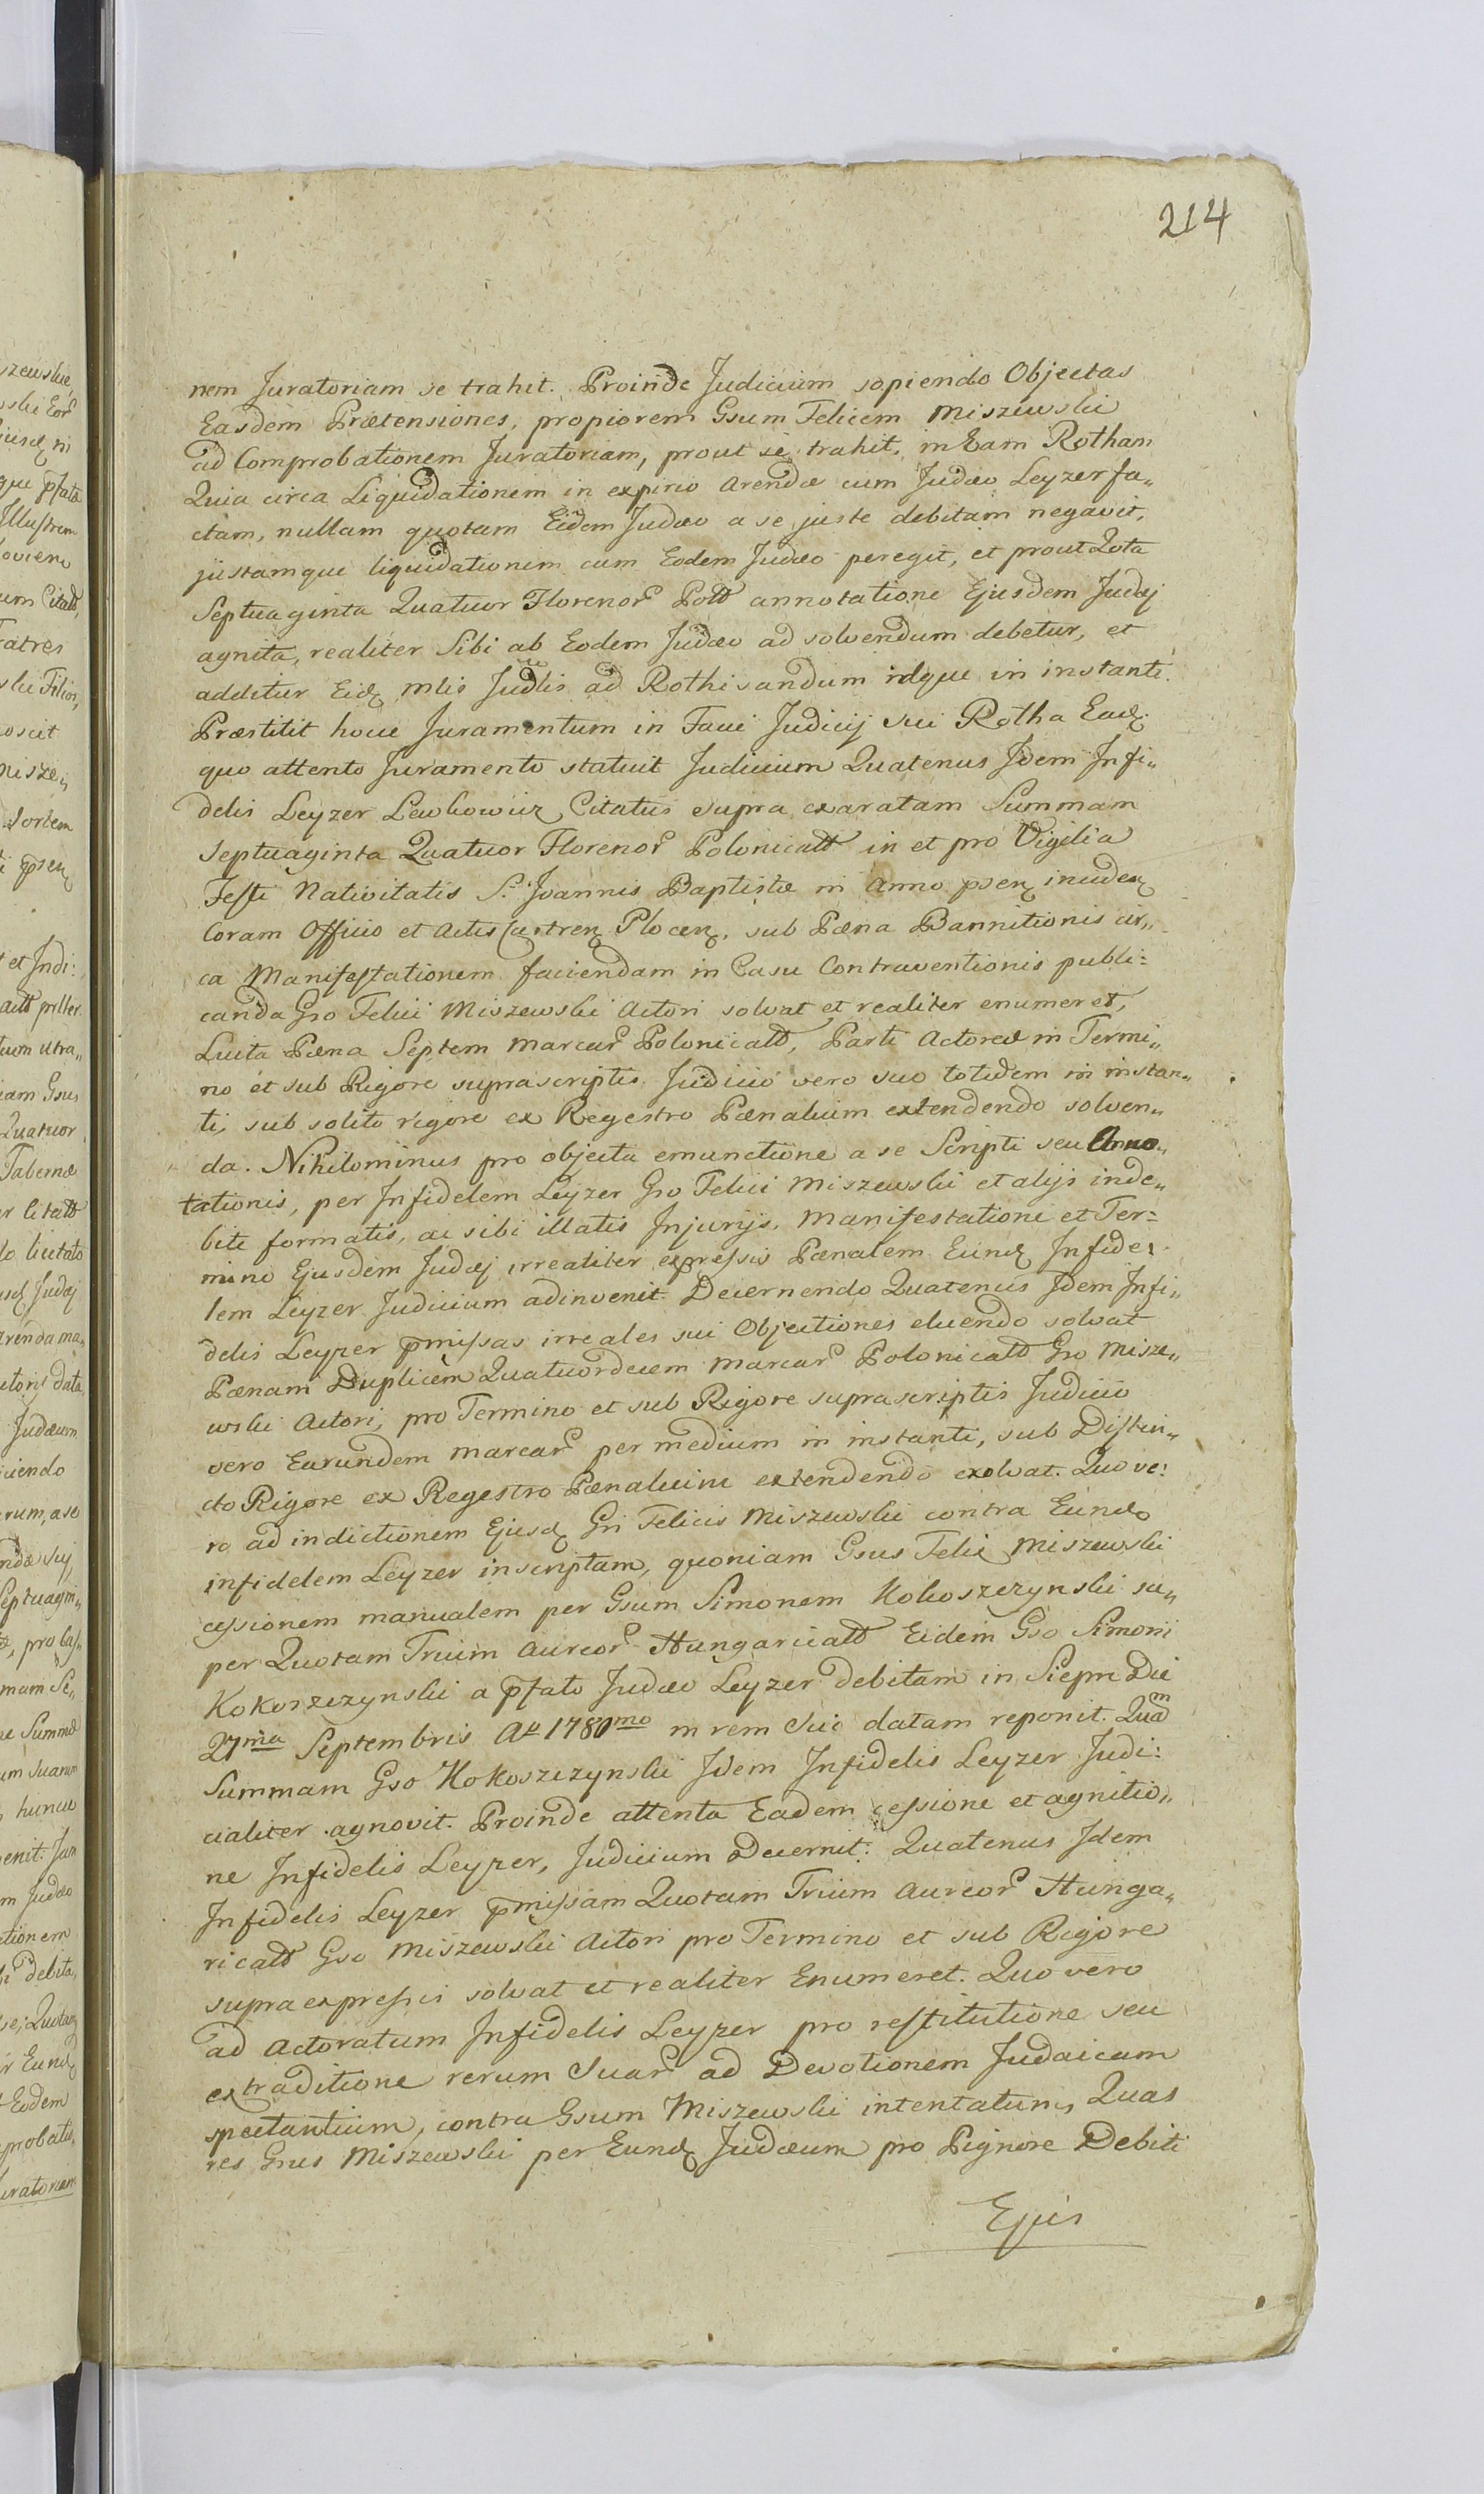 214
nem Juratoriam se trahit. Proinde Judicium sopiendo Objectas
Easdem Prætensiones, propiorem Gsum Felicem Miszewski
ad Comprobationem Juratoriam, prout se trahit, in Eam Rotham
Quia circa Liquidationem in expirio Arendæ cum Judæo Leyzer fa„
ctam, nullam quotam Eidem Judæo a se juste debitam negavit,
justamque liquidationem cum Eodem Judæo peregit, et prout Qota
Septuaginta Quatuor Florenor Poltt annotatione Ejusdem Judæj
agnita, realiter Sibi ab Eodem Judæo ad solvendum debetur, et
additur Eid mlis Judlis ad Rothisandum idque in instanti.
Præstitit hocce Juramentum in Facie Judicij sui Rotha Ead.
quo attento Juramento statuit Judicium Quatenus Idem Infi„
delis Leyzer Lewkowicz Citatus supra exaratam Summam
Septuaginta Quatuor Florenor Polonicalt in et pro Vigilia
Festi Nativitatis S. Joannis Baptistæ in Anno psen inciden
Coram Officio et Actis Castren Plocen, sub Pæna Bannitionis cir„
ca Manifestationem faciendam in Casu Contraventionis publi:
canda Gso Felici Miszewski Actori solvat et realiter enumeret,
Luita Pæna Septem Marcar Polonicalt, Parti Actoreæ in Termi„
no et sub Rigore suprascriptis Judicio vero suo totidem in instan„
ti, sub solito rigore ex Regestro Pænalium extendendo solven„
da. Nihilominus pro objecta emunctione a se Scripti seu Anno„
tationis, per Infidelem Leyzer Gso Felici Miszewski et alijs inde„
bite formatis, ac sibi illatis Injurijs, Manifestatione et Ter:
mino Ejusdem Judæj irrealiter expressis Pænalem Eund Infide:
lem Leyzer Judicium adinvenit. Decernendo Quatenus Idem Infi„
delis Leyzer pmissas irreales sui Objectiones eluendo solvat
Pænam Duplicem Quatuordecem Marcar Polonicalt Gso Misze„
wski Actori, pro Termino et sub Rigore suprascriptis Judicio
vero Earundem Marcar per medium in instanti, sub Distin„
cto Rigore ex Regestro Pænalium extendendo exolvat. Quo ve:
ro ad indictionem Ejusd Gsi Felicis Miszewski contra Eund
infidelem Leyzer inscriptam, quoniam Gsus Felix Miszewski
cessionem manualem per Gsum Simonem Kokoszczynski su„
per Quotam Trium Aureor Hungaricalt Eidem Gso Simoni
Kokoszczynski a pfato Judæo Leyzer debitam in Siepre Die
27ma Septembris Ao 1780mo in rem sui datam reponit. Quam
Summam Gso Kokoszczynski Idem Infidelis Leyzer Judi:
cialiter agnovit. Proinde attenta Eadem cessione et agnitio„
ne Infidelis Leyzer, Judicium Decernit: Quatenus Idem
Infidelis Leyzer pmissam Quotam Trium Aureor Hunga„
ricalt Gso Miszewski Actori pro Termino et sub Rigore
supra expressis solvat et realiter Enumeret. Quo vero
ad Actoratum Infidelis Leyzer pro restitutione seu
extraditione rerum suar ad Devotionem Judaicam
spectantium, contra Gsum Miszewski intentatum, Quas
res Gsus Miszewski per Eund Judæum pro Pignore Debiti
Ejus